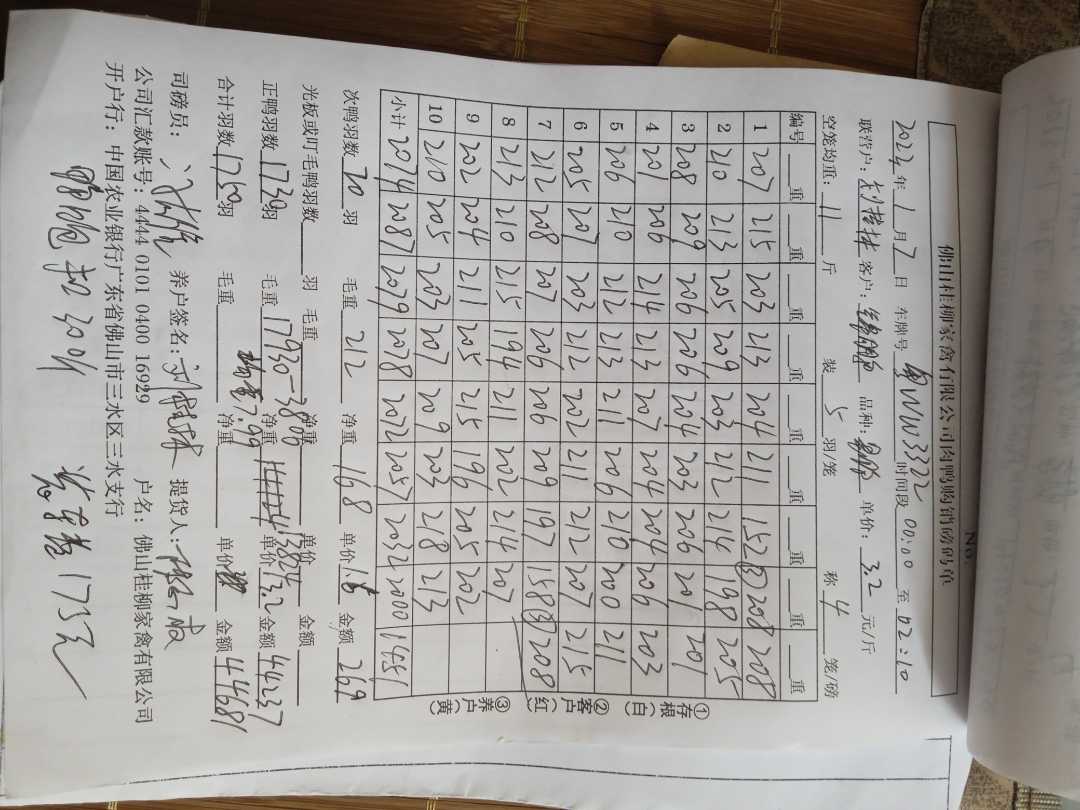 佛山桂柳家禽有限公司肉鸭购销磅码单
No.
2024年 1月7日 车牌号 粤WW3322 时间段 00:00 至 02:10
联营户: 客户: 品种: 单价: 3.2 元/斤
空笼均重: 11 斤 装 5 羽/笼 称 4 笼/磅
编号 重 重 重 重 重 重 重 重 重
1 207 215 203 213 204 211 152③ 208 208
2 210 213 205 209 203 212 214 198 205
3 208 209 206 206 204 203 206 201 201
4 201 206 214 213 207 204 204 206 203
5 206 210 212 213 211 206 210 200 211
6 205 207 203 212 202 211 212 207 215
7 212 208 207 209 206 209 197 158③ 208
8 213 210 215 194 211 202 214 207
9 202 204 211 205 215 196 205 202
10 210 205 203 207 209 203 218 213
小计 2074 2087 2079 2078 2072 2057 2032 2000 1451
①存根(白) ②客户(红) ③养户(黄)
次鸭羽数 20 羽 毛重 212 净重 168 单价 1.6 金额 269
光板或叮毛鸭羽数 羽 毛重 净重 单价 金额
正鸭羽数 1730 羽 毛重 17930-3806 净重 13824 单价 3.2 金额 44237
合计羽数 1750 羽 毛重 7.99 净重 单价 金额 44681
司磅员: 养户签名: 提货人:
公司汇款账号: 4444 0101 0400 16929 户名: 佛山桂柳家禽有限公司
开户行: 中国农业银行广东省佛山市三水区三水支行
175元